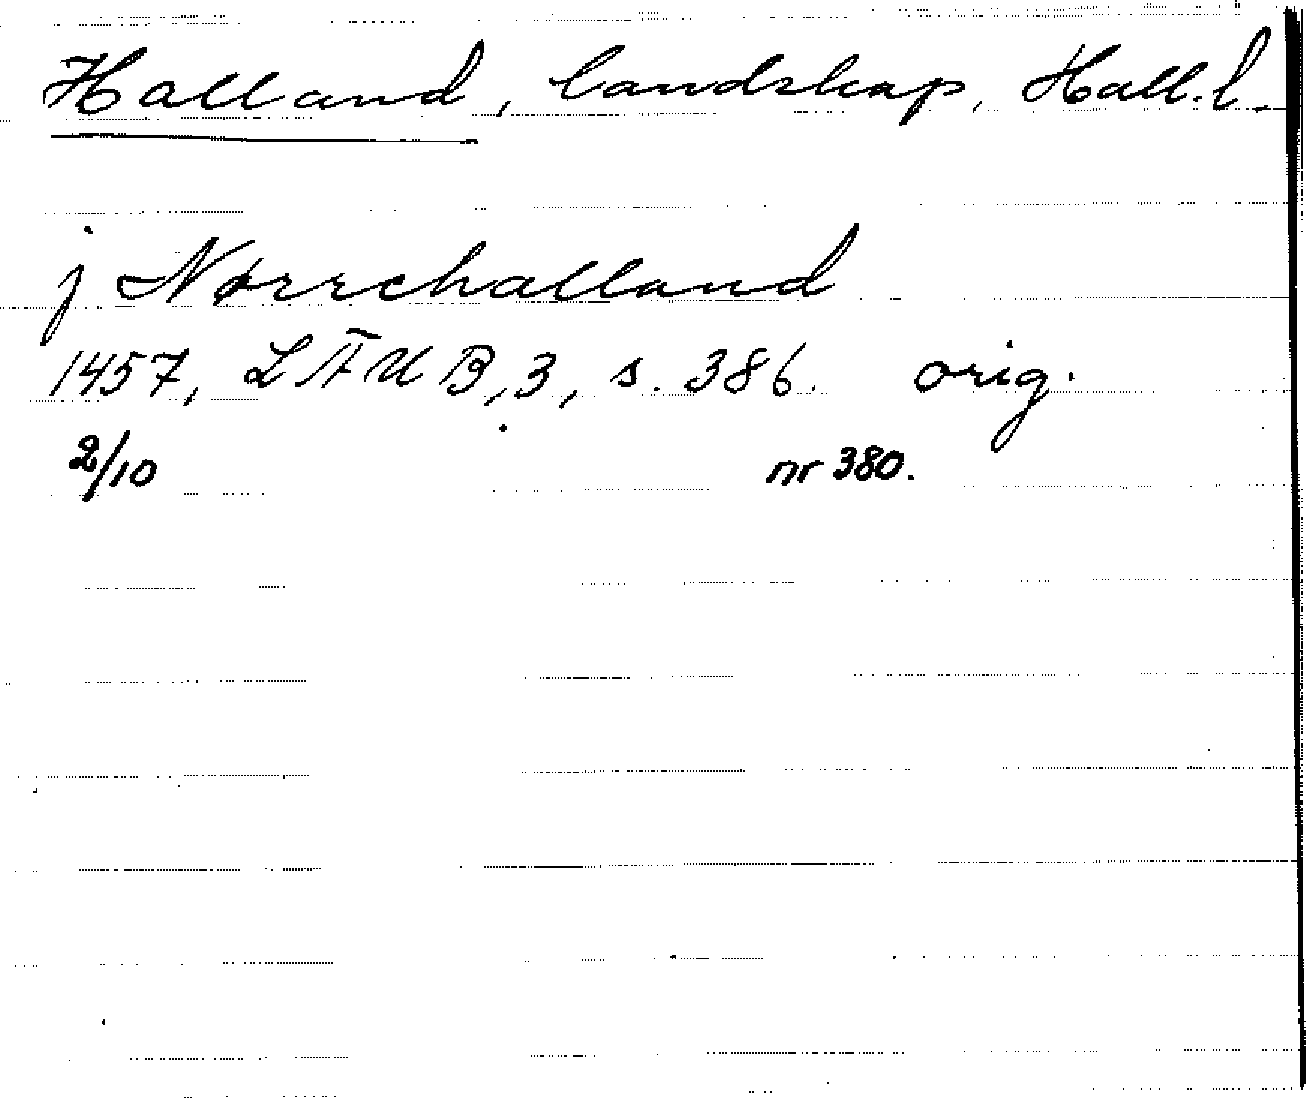 Halland, landskap, Hall. l.
j Nørrehalland
1457, LÄUB, 3, s. 386. orig.
2/10 nr 380.